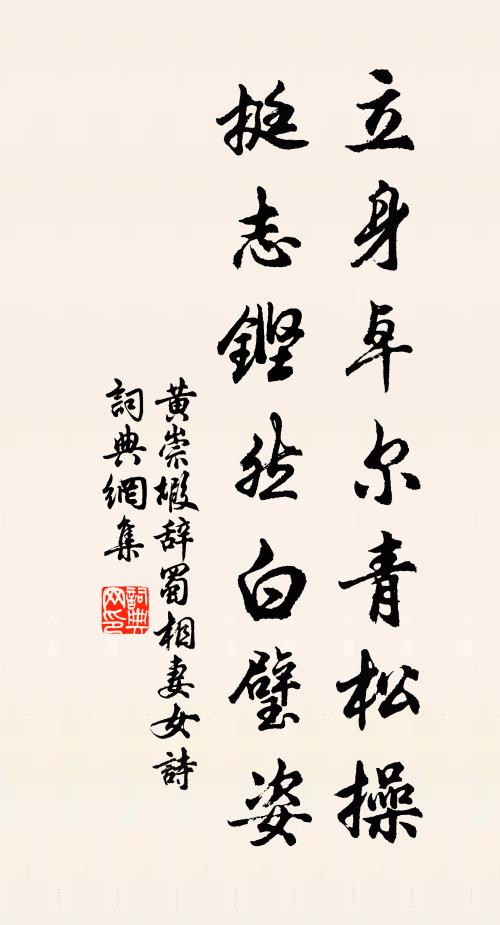 立身卓尔青松操
挺志鏗然白璧姿
黄崇嘏辞蜀相妻女詩
詞典網集
詞典网印